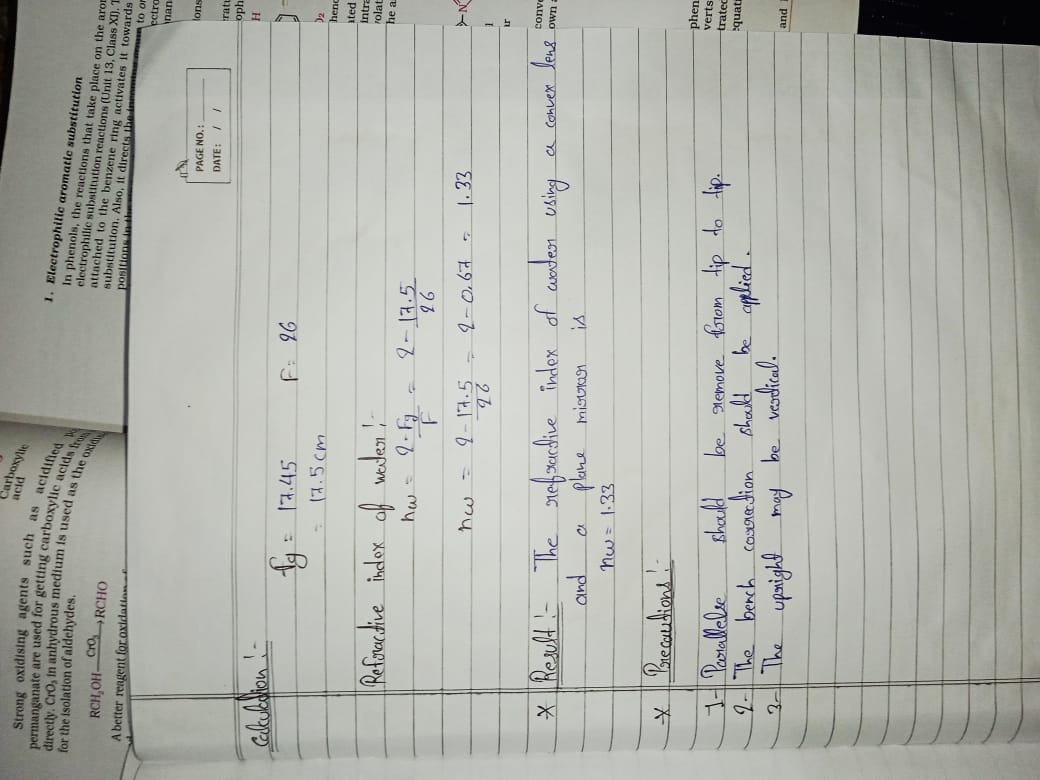 Strong oxidising agents such as acidified
permanganate are used for getting carboxylic acids from
directly. CrO₃ in anhydrous medium is used as the
for the isolation of aldehydes.
RCH₂OH CrO₃→ RCHO
A better reagent for oxidation of
Carboxylic
acid
1. Electrophilic aromatic substitution
In phenols, the reactions that take place on the
electrophilic substitution reactions (Unit 13, Class XI).
attached to the benzene ring activates it towards
substitution. Also, it directs the incoming group to
positions in the
PAGE NO.:
DATE: / /
Calculation :-
fg = 17.45 F = 26
= 17.5 cm
Refractive index of water :-
nw = 2 - Fg/F = 2 - 17.5/26
nw = 2 - 17.5/26 = 2 - 0.67 = 1.33
* Result :- The refractive index of water using a convex lens
and a plane mirror is
nw = 1.33
* Precautions :-
1- Parallelse should be remove from tip to tip.
2- The bench correction should be applied.
3- The upright may be vertical.